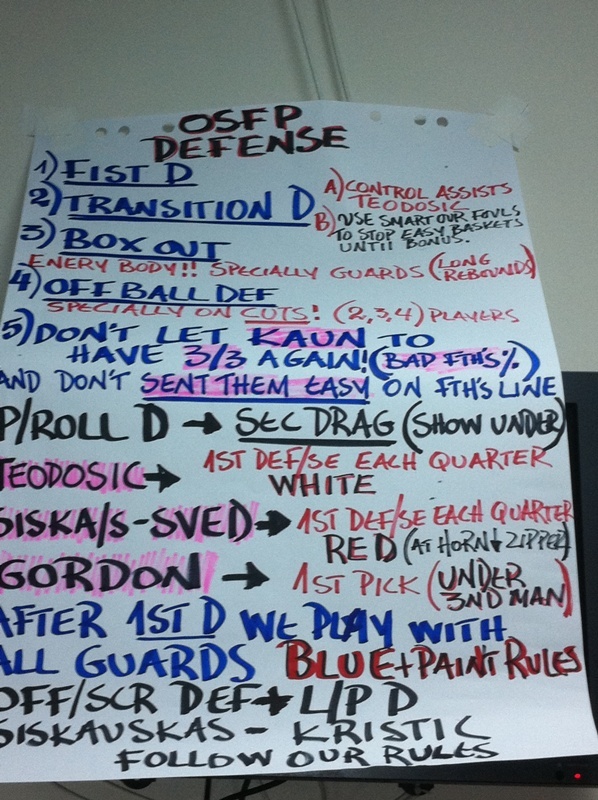 OSFP
DEFENSE
1) FIST D
2) TRANSITION D
A) CONTROL ASSISTS
TEODOSIC
B) USE SMART OUR FOULS
TO STOP EASY BASKETS
UNTIL BONUS.
3) BOX OUT
ENERY BODY!! SPECIALLY GUARDS (LONG
REBOUNDS)
4) OFF BALL DEF
SPECIALLY ON CUTS! (2,3,4) PLAYERS
5) DON'T LET KAUN TO
HAVE 3/3 AGAIN! (BAD FTH'S%)
AND DON'T SENT THEM EASY ON FTH'S LINE
P/ROLL D → SEC DRAG (SHOW UNDER)
TEODOSIC → 1ST DEF/SE EACH QUARTER
WHITE
SISKA/S-SVED → 1ST DEF/SE EACH QUARTER
RED (AT HORN + ZIPPER)
GORDON → 1ST PICK (UNDER
3ND MAN)
AFTER 1ST D WE PLAY WITH
ALL GUARDS BLUE+PAINT RULES
OFF/SCR DEF + L/P D
SISKAUSKAS - KRISTIC
FOLLOW OUR RULES